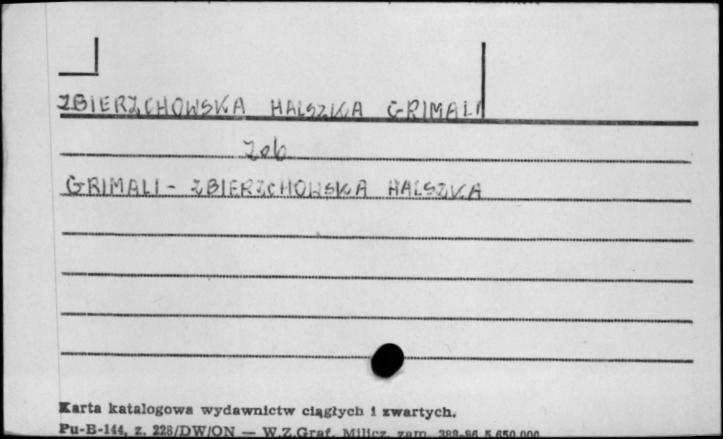 ZBIERZCHOWSKA HALSZKA GRIMALI
Zob
GRIMALI - ZBIERZCHOWSKA HALSZKA
Karta katalogowa wydawnictw ciągłych i zwartych.
Pu-B-144, z. 228/DW/ON — W.Z.Graf. Milicz, zam. 388-86 5.650.000